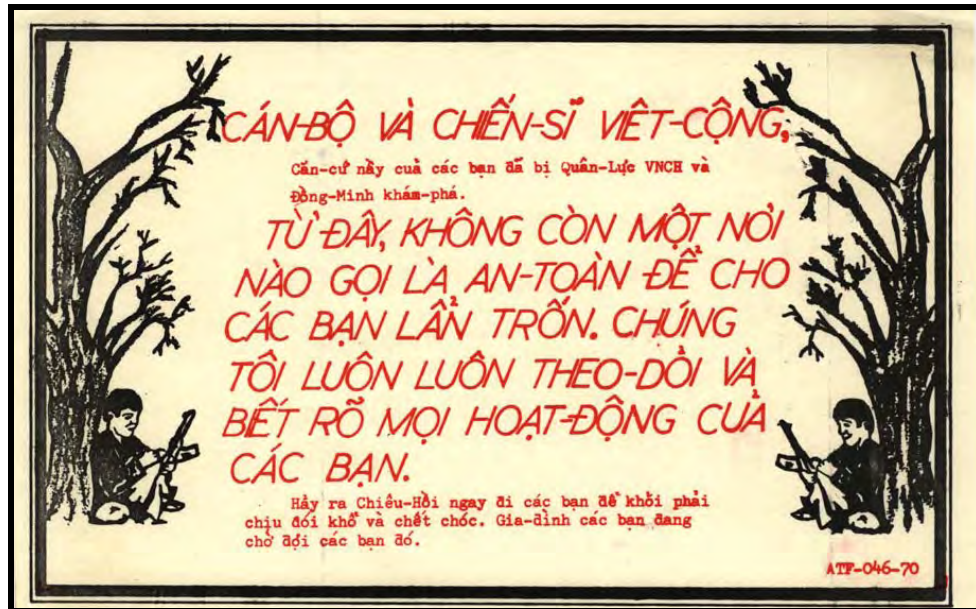 CÁN-BỘ VÀ CHIẾN-SĨ VIÊT-CỘNG,
Căn-cứ nầy cuả các bạn đã bị Quân-Lực VNCH và
Đồng-Minh khám-phá.
TỪ ĐÂY, KHÔNG CÒN MỘT NƠI
NÀO GỌI LÀ AN-TOÀN ĐỂ CHO
CÁC BẠN LẨN TRỐN. CHÚNG
TÔI LUÔN LUÔN THEO-DÒI VÀ
BIẾT RÕ MỌI HOẠT-ĐỘNG CUẢ
CÁC BẠN.
Hảy ra Chiêu-Hồi ngay đi các bạn để khỏi phải
chịu đói khổ và chết chóc. Gia-đình các bạn đang
chờ đợi các bạn đó.
ATF-046-70